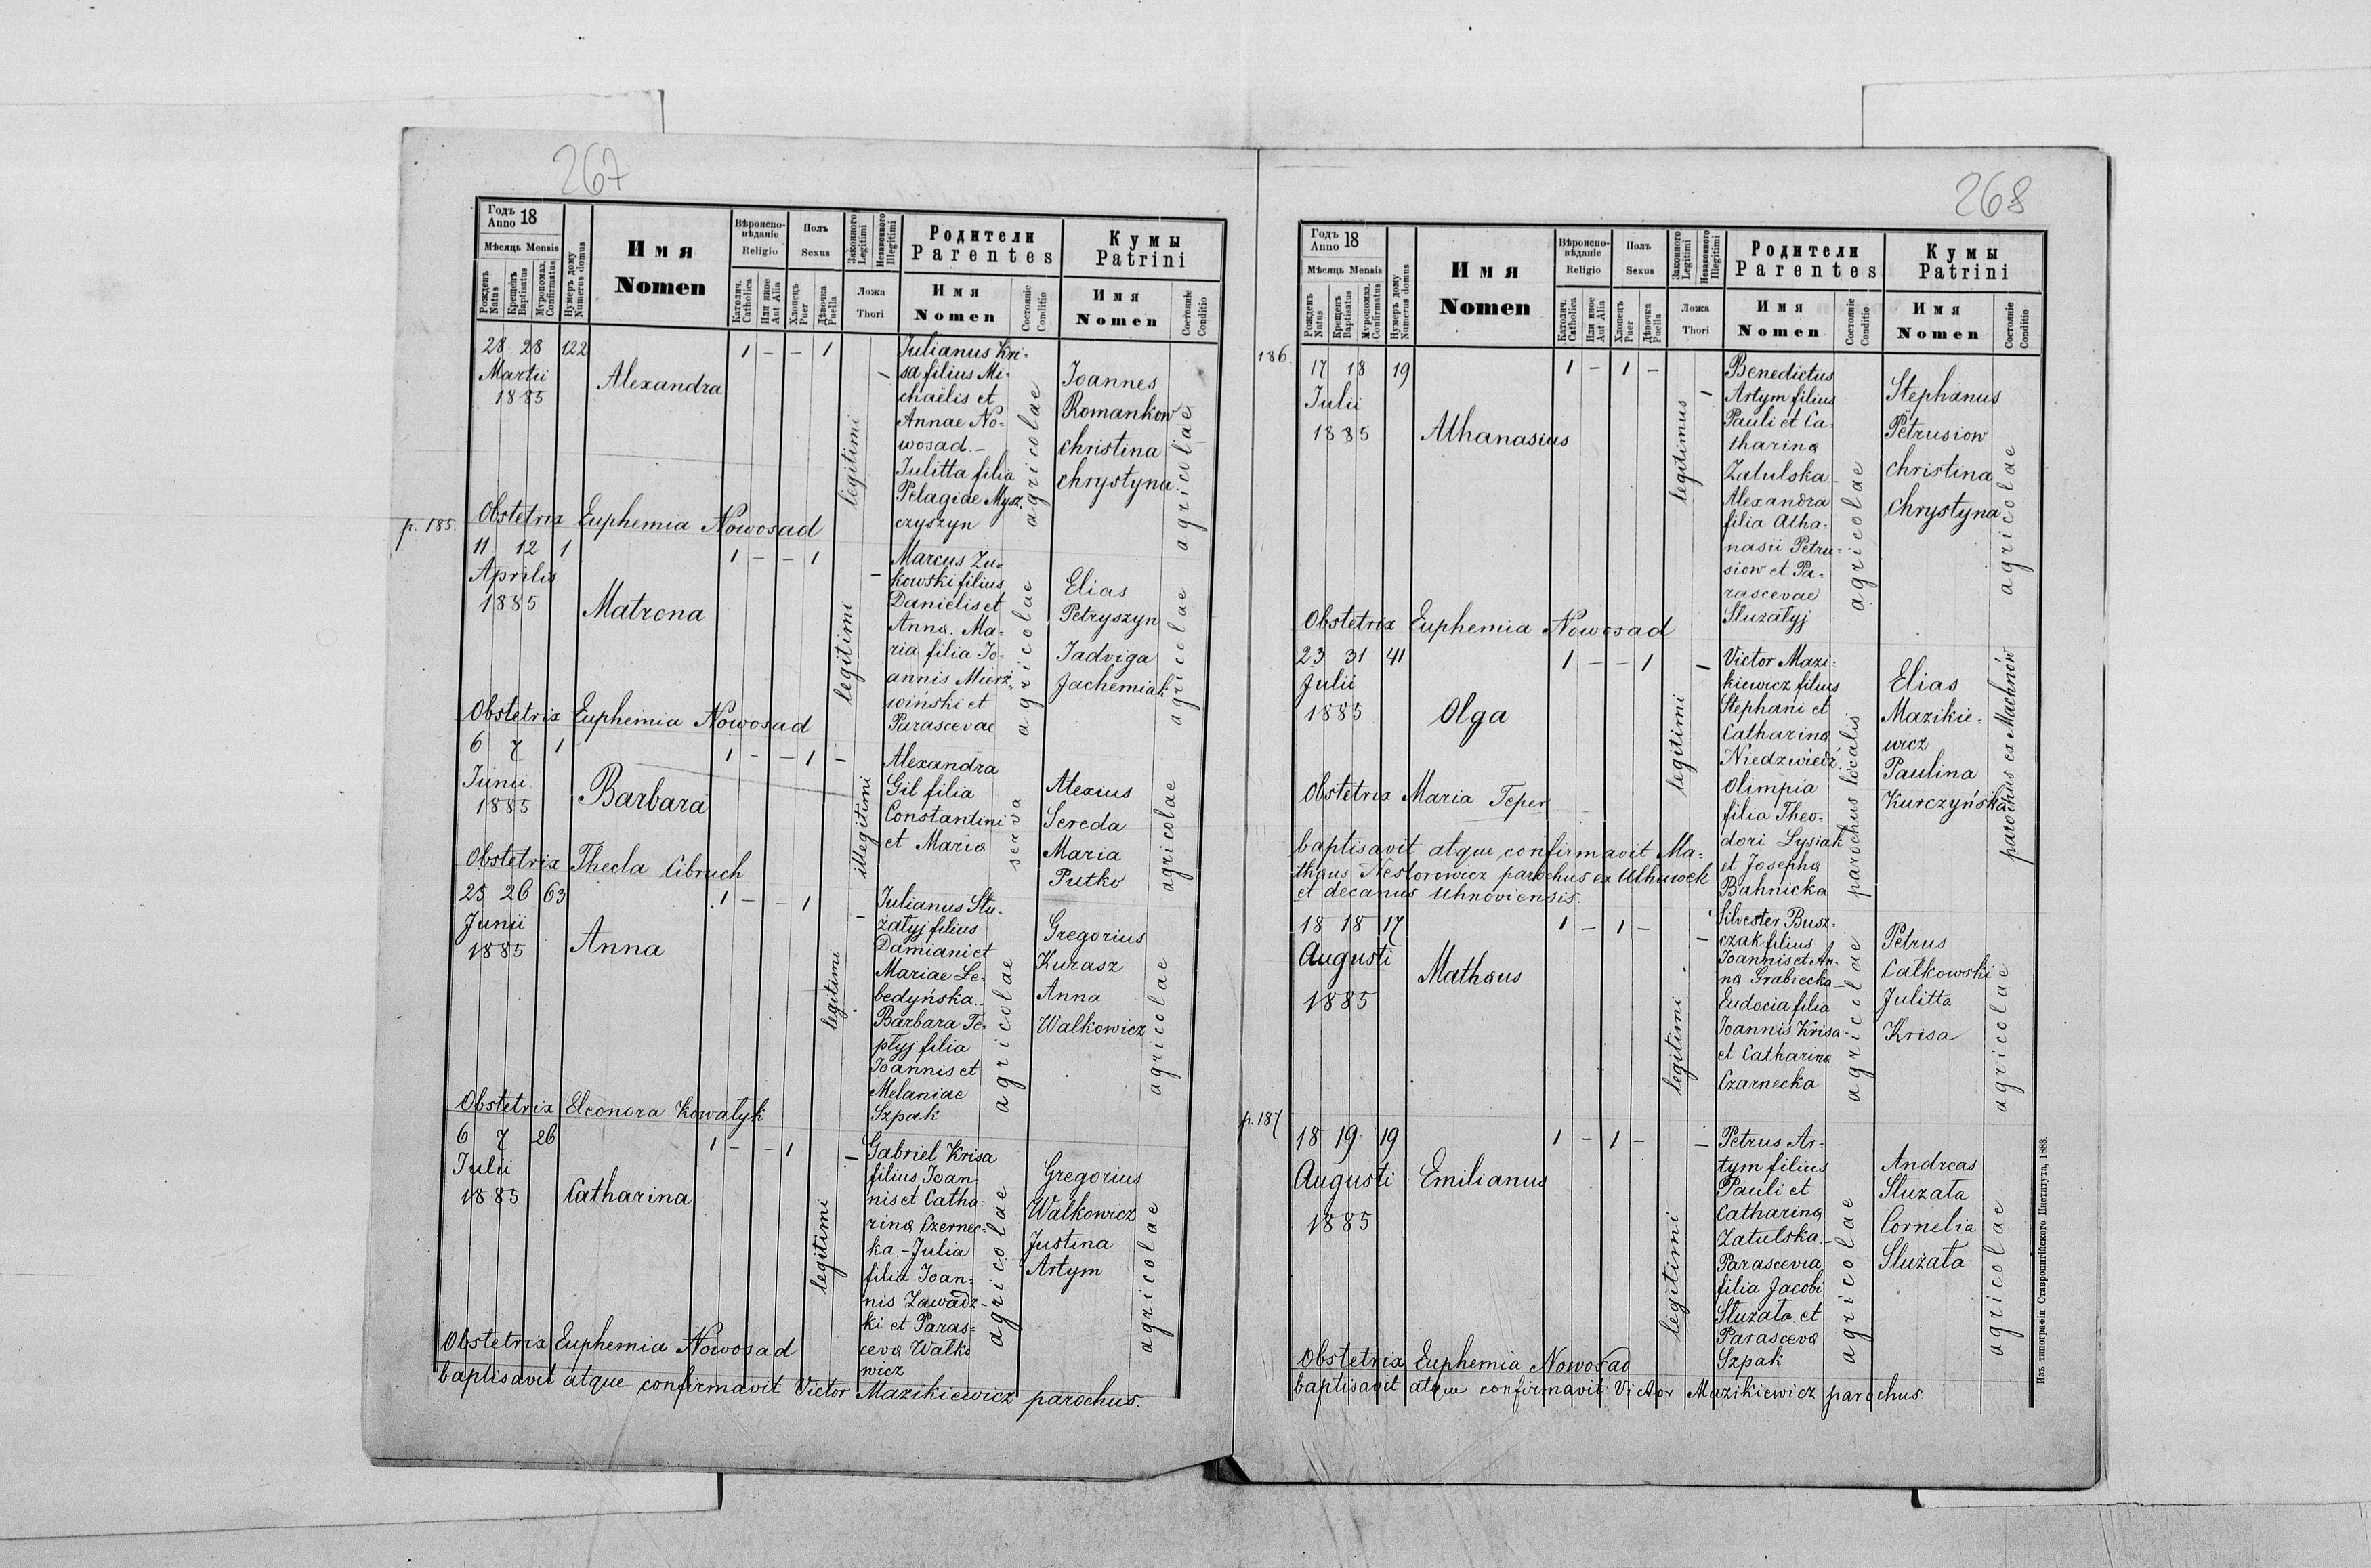 267
Годъ Anno 18
Мѣсяць Mensis
Рожденъ Natus
Крещенъ Baptisatus
Мѵропомаз. Confirmatus
Нумеръ дому Numerus domus
Имя Nomen
Вѣроиспо-вѣданіе Religio
Католич. Catholica
Или иное Aut Alia
Полъ Sexus
Хлопецъ Puer
Дѣвочка Puella
Законного Legitimi
Незаконного Illegitimi
Ложа Thori
Родители Parentes
Имя Nomen
Состояніе Conditio
Кумы Patrini
Имя Nomen
Состояніе Conditio
28 28 122
Martii
1885
Alexandra
1 - - 1
legitimi
Julianus Kri-
sa filius Mi-
chaëlis et
Annae No-
wosad.-
Julitta filia
Pelagiae Mysz.
czyszyn
agricolae
Joannes
Romankow
christina
chrystyna
agricolae
Obstetrix Euphemia Nowosad
p. 185.
11 12 1
Aprilis
1885
Matrona
1 - - 1
legitimi
Marcus Zu-
kowski filius
Danielis et
Anna. Ma-
ria filia Jo-
annis Mierz-
wiński et
Parascevae
agricolae
Elias
Petryszyn
Jadviga
Jachemiak
agricolae
Obstetrix Euphemia Nowosad
6 7 1
Junii
1885
Barbara
1 - - 1 -
illegitimi
Alexandra
Gil filia
Constantini
et Maria
serva
Alexius
Sereda
Maria
Putko
agricolae
Obstetrix Thecla Cibruch
25 26 63
Junii
1885
Anna
1 - - 1
legitimi
Julianus Słu-
żałyj filius
Damiani et
Mariae Le-
bedyńska.-
Barbara Te-
płyj filia
Joannis et
Melaniae
Szpak
agricolae
Gregorius
Kurasz
Anna
Walkowicz
agricolae
Obstetrix Eleonora Kowalyk
6 7 26
Julii
1885
Catharina
1 - - 1
legitimi
Gabriel Krisa
filius Joan-
nis et Catha-
rina Czernec-
ka.- Julia
filia Joan-
nis Zawadz-
ki et Paras-
ceva Walko
wicz
agricolae
Gregorius
Walkowicz
Justina
Artym
agricolae
Obstetrix Euphemia Nowosad
baptisavit atque confirmavit Victor Mazikiewicz parochus.
268
Годъ Anno 18
Мѣсяць Mensis
Рожденъ Natus
Крещенъ Baptisatus
Мѵропомаз. Confirmatus
Нумеръ дому Numerus domus
Имя Nomen
Вѣроиспо-вѣданіе Religio
Католич. Catholica
Или иное Aut Alia
Полъ Sexus
Хлопецъ Puer
Дѣвочка Puella
Законного Legitimi
Незаконного Illegitimi
Ложа Thori
Родители Parentes
Имя Nomen
Состояніе Conditio
Кумы Patrini
Имя Nomen
Состояніе Conditio
186.
17 18 19
Julii
1885
Athanasius
1 - 1 -
legitimus
Benedictus
Artym filius
Pauli et Ca-
tharina
Zatulska-
Alexandra
filia Atha-
nasii Petru-
siow et Pa-
rascevae
Słuzałyj
agricolae
Stephanus
Petrusiow
christina
Chrystyna
agricolae
Obstetrix Euphemia Nowosad
23 31 41
Julii
1885
Olga
1 - - 1
legitimi
Victor Mazi-
kiewicz filius
Stephani et
Catharina
Niedzwiedź.
Olimpia
filia Theo-
dori Lysiak
et Josepha
Bahnicka
parochus localis
Elias
Mazikie-
wicz
Paulina
Kurczyńska
parochus ex Machnów
Obstetrix Maria Teper
baptisavit atque confirmavit Ma-
thäus Nestorowicz parochus ex Ulhuwek
et decanus Uhnoviensis.
18 18 17
Augusti
1885
Mathäus
1 - 1 -
legitimi
Silvester Busz-
czak filius
Joannis et An-
na Grabiecka-
Eudocia filia
Joannis Krisa-
et Catharina
Czarnecka
agricolae
Petrus
Całkowski
Julitta
Krisa
agricolae
p. 187
18 19 19
Augusti
1885
Emilianus
1 - 1 -
legitimi
Petrus Ar-
tym filius
Pauli et
Catharina
Zatulska.-
Parascevia
filia Jacobi
Słuzała et
Parasceva
Szpak
agricolae
Andreas
Słuzała
Cornelia
Służała
agricolae
Obstetrix Euphemia Nowosad
baptisavit atque confirmavit Victor Mazikiewicz parochus
Изъ типографіи Ставропигійского Института, 1883.